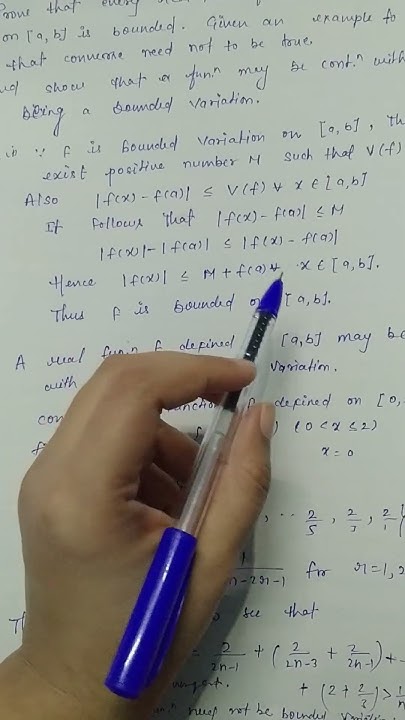 Prove that every
on [a, b] is bounded. Given an example to
that converse need not to be true.
show that a funⁿ may be contⁿ with
being a bounded variation.
∵ f is bounded variation on [a, b], Th
exist positive number M such that V(f)
Also |f(x) - f(a)| ≤ V(f) ∀ x ∈ [a, b]
It follows that |f(x) - f(a)| ≤ M
|f(x)| - |f(a)| ≤ |f(x) - f(a)|
Hence |f(x)| ≤ M + f(a) ∀ x ∈ [a, b].
Thus f is bounded on [a, b].
A real funⁿ f defined [a, b] may be
with variation.
defined on [0,
(0 < x ≤ 2)
x = 0
, ·· 2/5, 2/3, 2/1
1/2n-2r-1 for r = 1, 2
see that
= 2/2n-1 + (2/2n-3 + 2/2n-1) +
+ (2 + 2/3) > 1/n
need not be bounded variation